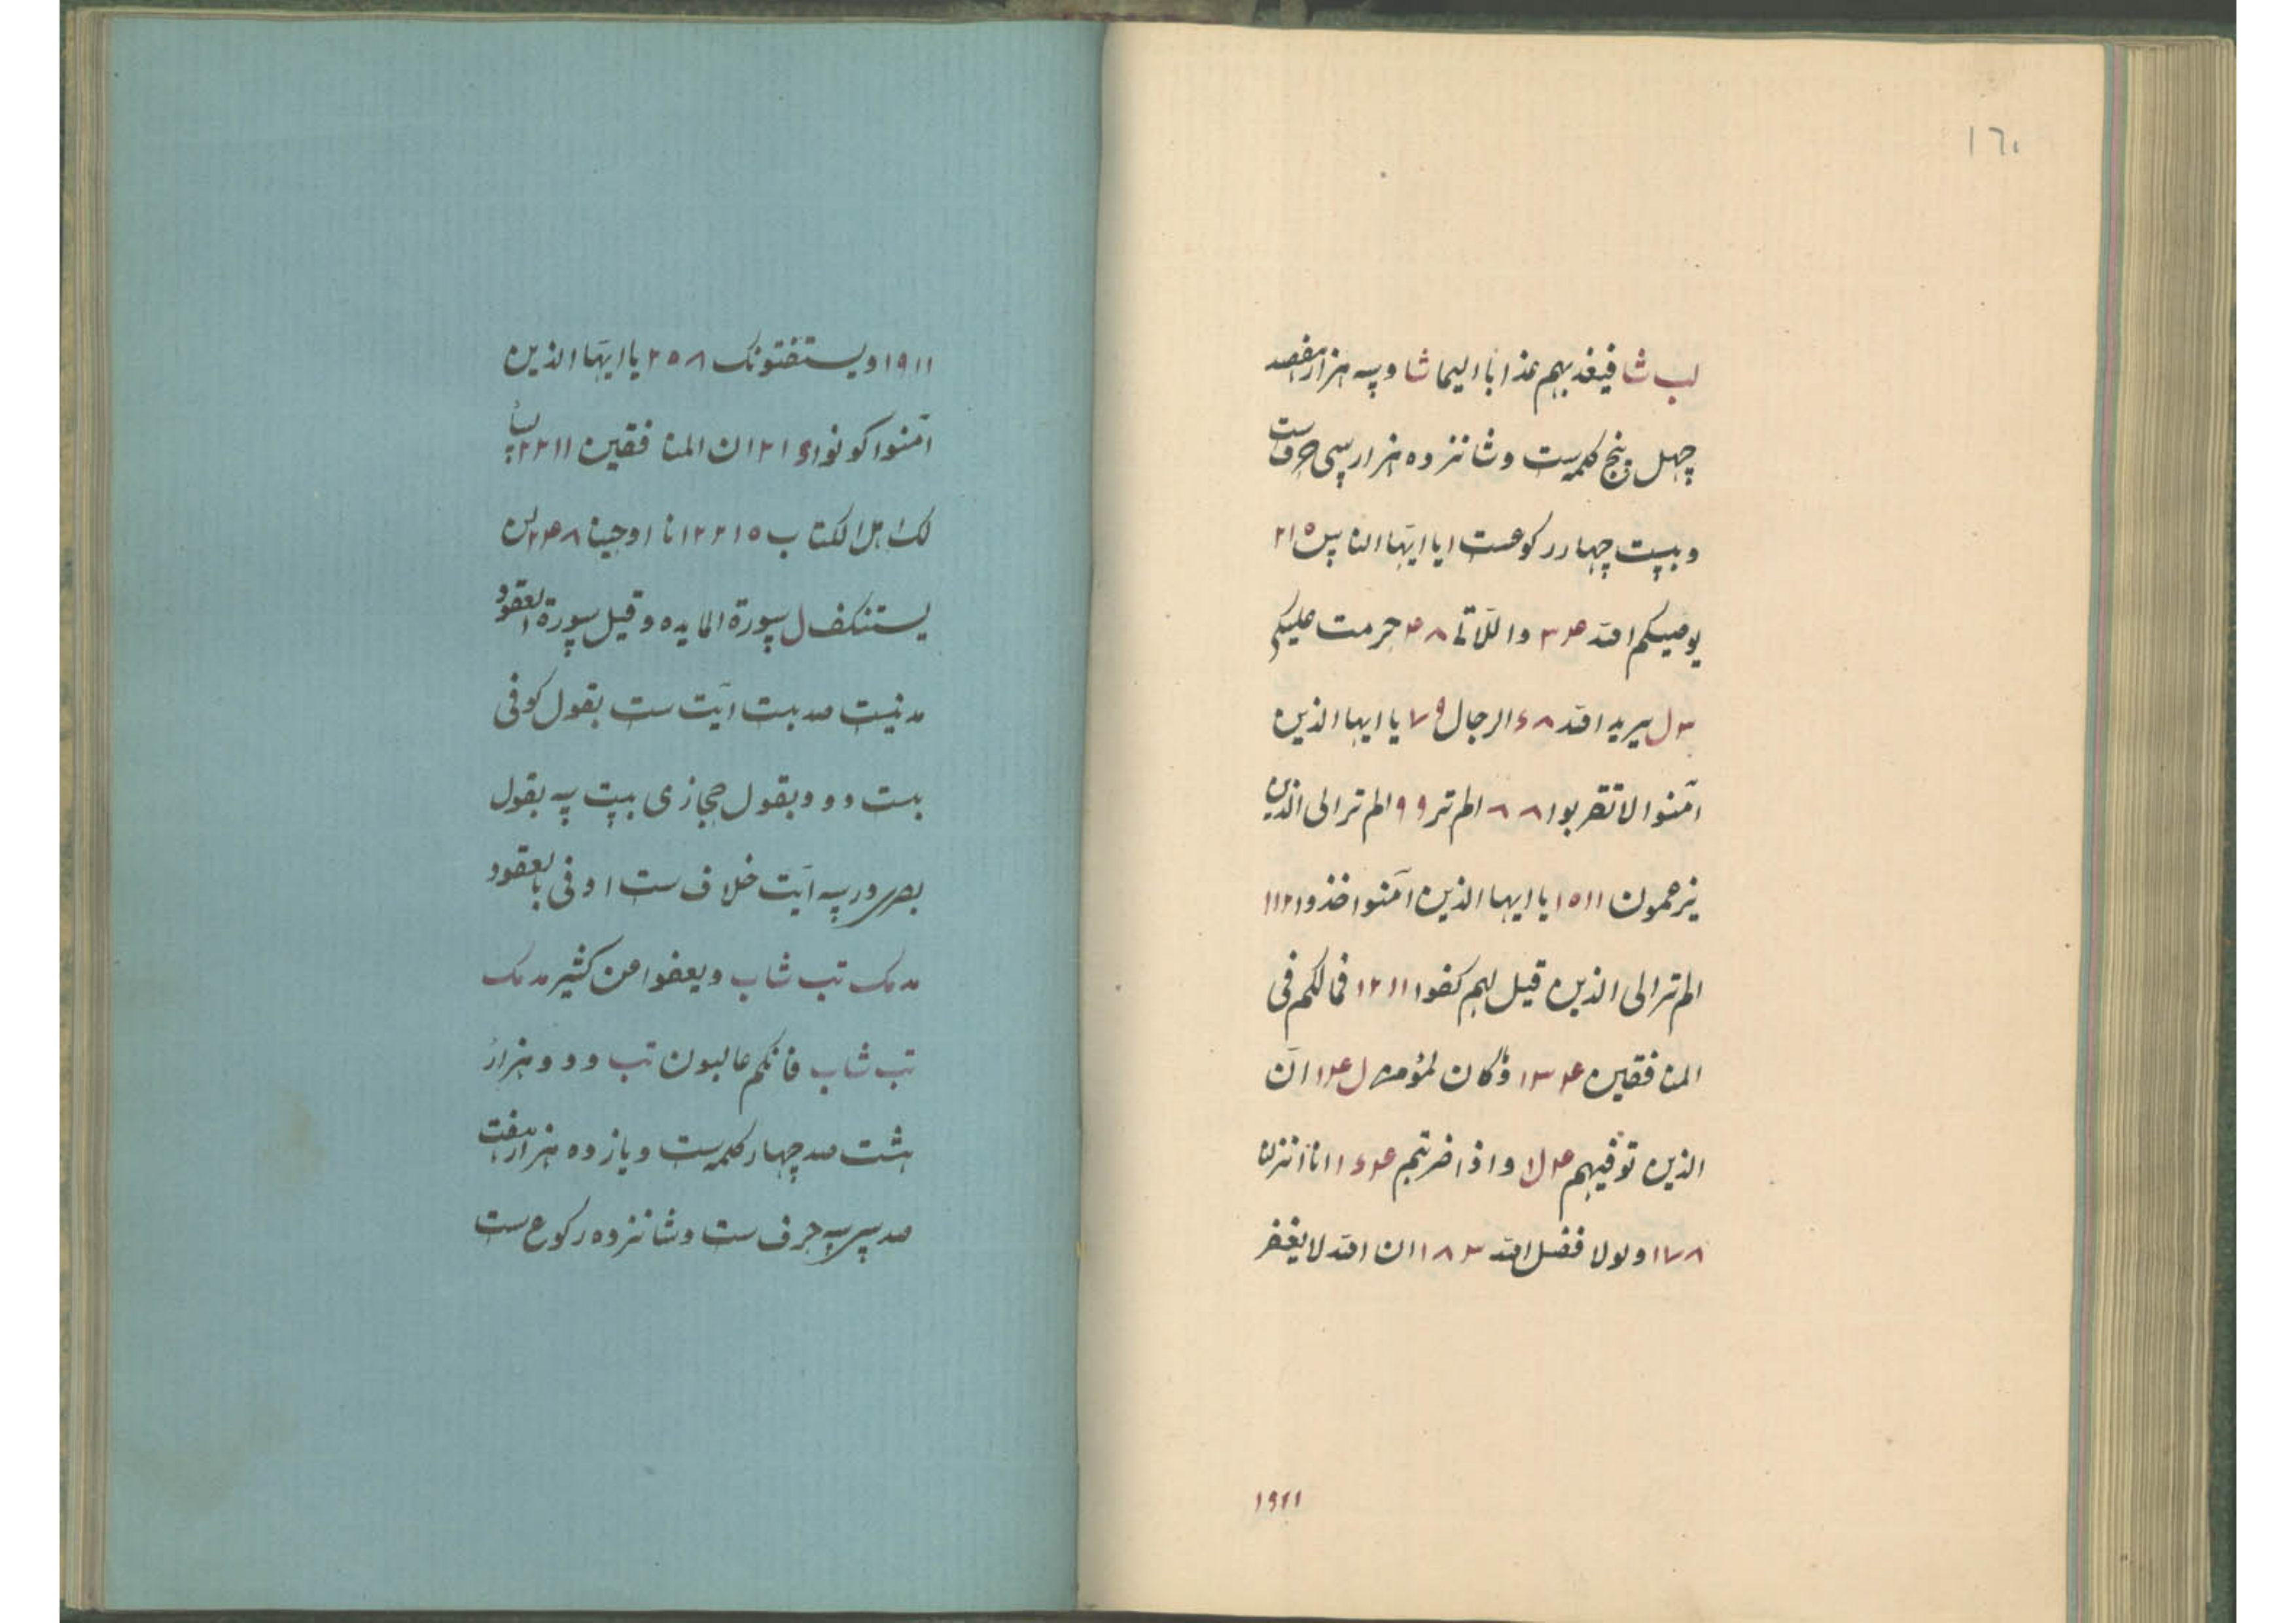 ١٦٠
لب شا فیعذبهم عذابا الیما شا و سه هزار هفصد
چهل و پنج کلمه‌ست و شانزده هزار سی حرفست
و بیست چهار رکوعست ا یا ایّها الناس ۲۱۵
یوصیکم الله ۳۴ واللّاتی ۴۸ حرمت علیکم
۳ ل یرید الله ۶۸ الرجال ۷۹ یا ایها الذین
آمنوا لا تقربوا ۸۸ الم تر ۹۹ الم تر الی الذین
یزعمون ۱۵۱۱ یا ایها الذین آمنوا خذوا ۱۱۲۱
الم تر الی الذین قیل لهم کفوا ۱۲۱۱ فما لکم فی
المنافقین ۱۳۴ و ما کان لمؤمن ل ۱۴ ان
الذین توفیهم ۴ ل۱ و اذا ضربتم ۱۶۴ انا انزلنا
۱۷۸ و لولا فضل الله ۱۸۳ ان الله لا یغفر
۱۹۲۱
۱۹۱۱ و یستفتونک ۲۵۸ یا ایّها الذین
آمنوا کونوا ۲۱۶ ان المنافقین ۲۲۱۱
لک اهل الکتاب ۲۲۱۵ انا اوحینا ۲۴۸ لن
یستنکف ل سورة المایده و قیل سورة العقود
مدنیست صد بیست آیت ست بقول کوفی
بست دو و بقول حجازی بیست سه بقول
بصری در سه آیت خلاف ست اوفی بالعقود
مد مک تب شاب و یعفوا عن کثیر مد مک
تب شاب فانکم غالبون تب و دو هزار
هشت صد چهار کلمه‌ست و یازده هزار هفت
صد سی سه حرف ست و شانزده رکوع ست